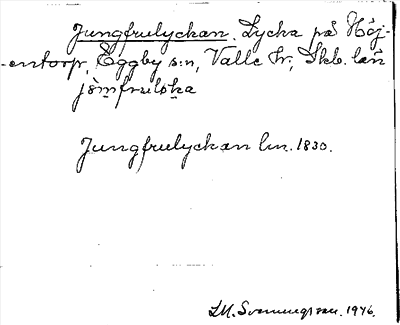 Jungfrulyckan. Lycka på Höj-
-entorp, Eggby s:n, Valle hr, Skb. län
jòm̱frulsḵa
Jungfrulyckan lm. 1830.
1946.